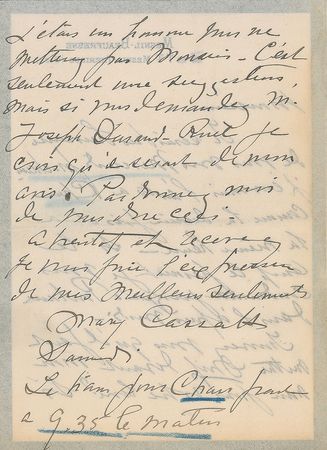 j'étais un homme vous ne
mettrez pas Monsieur - C'est
seulement une suggestion,
mais si vous demandez M.
Joseph Durand-Ruel je
crois qu'il serait de mon
avis. Pardonnez moi
de vous dire ceci -
a bientot et recevez
je vous prie l'expression
de mes meilleurs sentiments
Mary Cassatt
Samedi
Le train pour Chars part
a 9.35 le matin